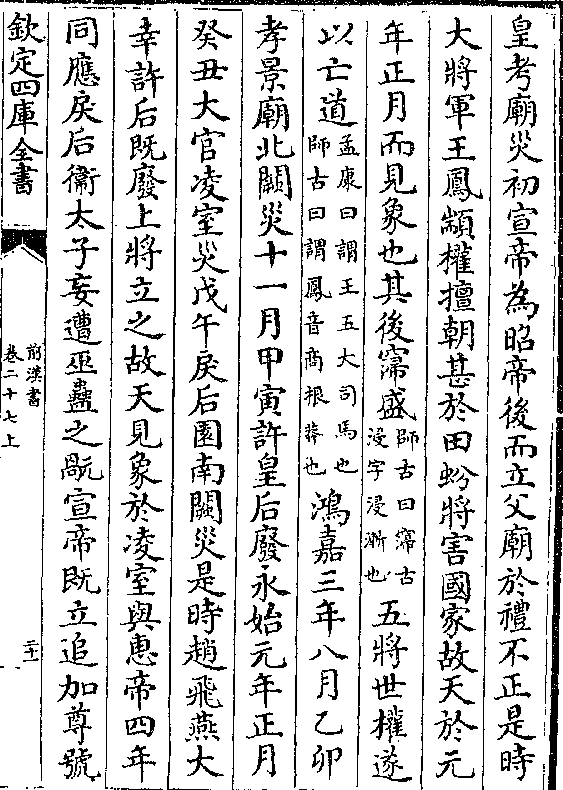 皇考廟災初宣帝為昭帝後而立父廟於禮不正是時
大將軍王鳳顓權擅朝甚於田蚡將害國家故天於元
年正月而見象也其後寖盛師古曰寖古浸字浸漸也五將世權遂
以亡道孟康曰謂王五大司馬也師古曰謂鳳音商根莽也鴻嘉三年八月乙卯
孝景廟北闕災十一月甲寅許皇后廢永始元年正月
癸丑大官凌室災戊午戾后園南闕災是時趙飛燕大
幸許后既廢上將立之故天見象於凌室與惠帝四年
同應戾后衞太子妾遭巫蠱之旤宣帝既立追加尊號
欽定四庫全書
前漢書
卷二十七上
二十